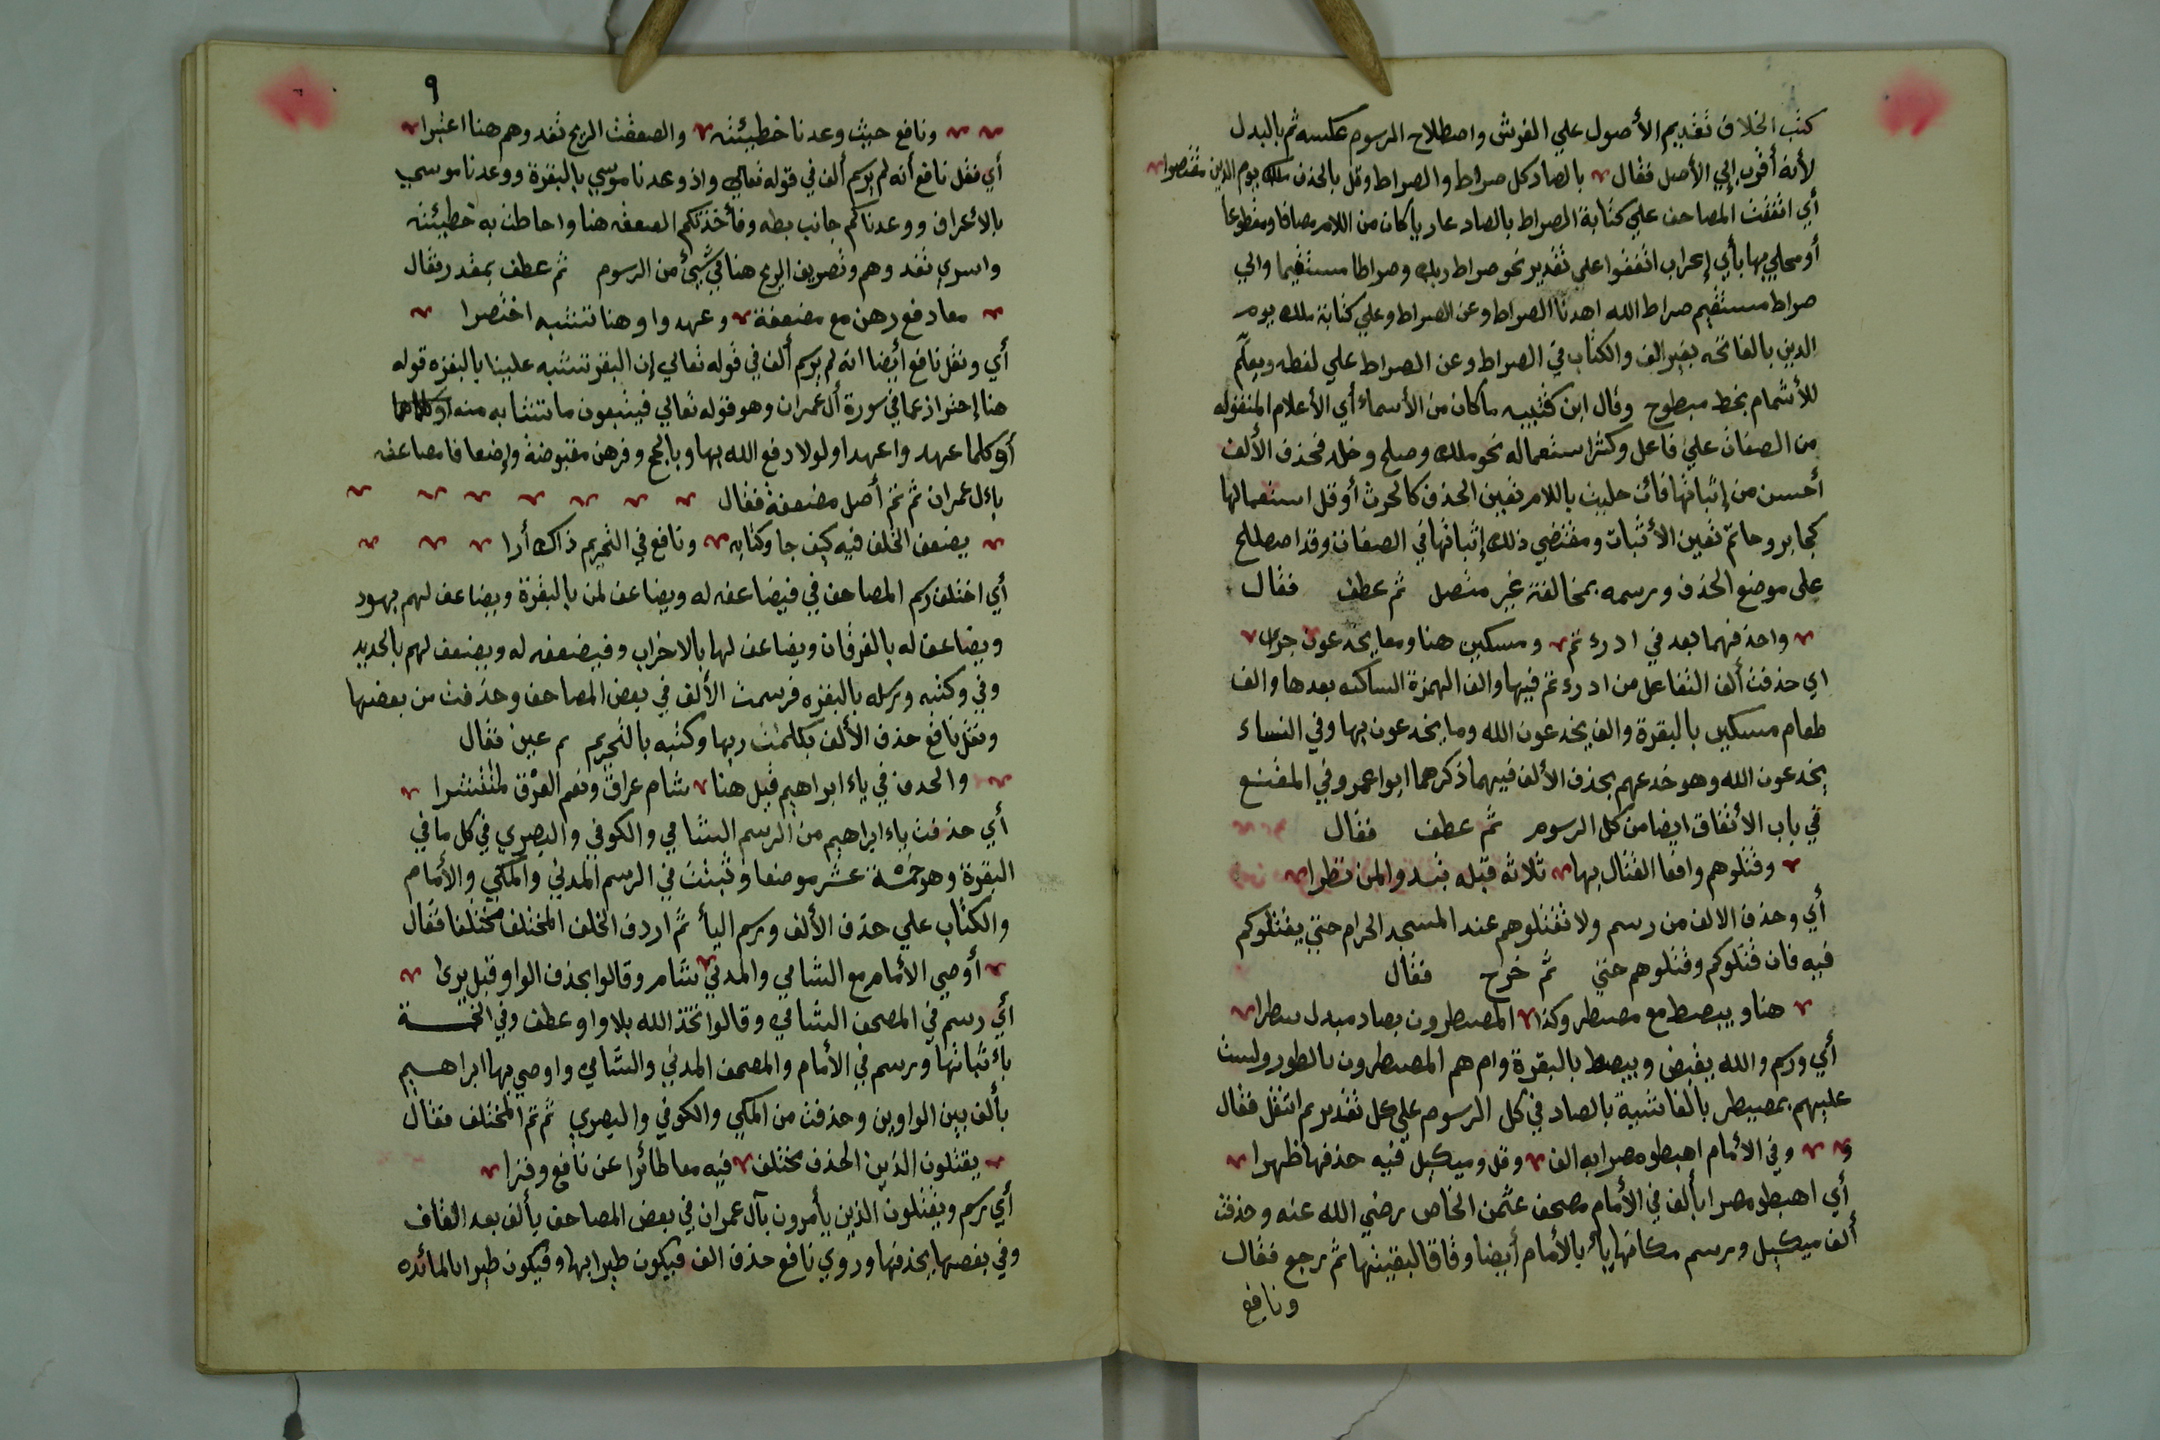 كتب الخلاف تقديم الأصول علي الفرش واصطلاح الرسوم عكسه ثم بالبدل
لأنه أقرب إلي الأصل فقال بالصاد كل صراط والصراط وقل بالحذف ملك يوم الدين مقتصرا
أي اتفقت المصاحف علي كتابة الصراط بالصاد عاريا كان من اللام مضافا ومقطوعا
أو محلي بها بأي إعراب اتفقوا علي تقدير نحو صراط ربك وصراطا مستقيما والي
صراط مستقيم صراط الله اهدنا الصراط وعن الصراط وعلي كتابة ملك يوم
الدين بالفاتحه بغير الف والكتاب في الصراط وعن الصراط علي لفظه ويعلّم
للأشمام بخط مبطوح وقال ابن قتيبه ما كان من الأسماء أي الأعلام المنقوله
من الصفات علي فاعل وكثر استعماله نحو ملك وصلح وخلد فحذف الألف
أحسن من إثباتها فان حليت باللام تعين الحذف كالحرث أو قل استعمالها
كجابر وحاتم تعين الأثبات ومقتضي ذلك إثباتها في الصفات وقد اصطلح
على موضع الحذف ورسمه بمخالفة غير متصل ثم عطف فقال
واحذفهما بعد في ادرء تم ومسكين هنا ومعا يخدعون جرى
اي حذفت ألف التفاعل من ادرءتم فيها والف الهمزة الساكنه بعدها والف
طعام مسكين بالبقرة والف يخدعون الله وما يخدعون بها وفي النساء
يخدعون الله وهو خدعهم بحذف الألف فيهما ذكرهما ابوا عمرو في المقنع
في باب الأتفاق ايضا من كل الرسوم ثم عطف فقال
وقتلوهم وافعا القتال بها ثلاثة قبله تبدو المن نظرا
أي وحذف الالف من رسم ولا تقتلوهم عند المسجد الحرام حتي يقتلوكم
فيه فان قتلوكم وقتلوهم حتي ثم خرج فقال
هنا ويبصط مع مصيطر وكذا المصيطرون بصاد مبدل سطرا
أي ورسم والله يقبض ويبصط بالبقرة وام هم المصيطرون بالطور ولست
عليهم بمصيطر بالغاشية بالصاد في كل الرسوم علي كل تقدير ثم انتقل فقال
وفي الأمام اهبطوا مصرا به الف وقل وميكيل فيه حذفها ظهرا
أي اهبطو مصرا بألف في الأمام مصحف عثمن الخاص رضي الله عنه وحذفت
ألف ميكيل ورسم مكانها ياء بالأمام أيضا وفاقا لبقيتها ثم رجع فقال
ونافع
٩
ونافع حيث وعدنا خطيئته والصعقت الريح تفدوهم هنا اعتبرا
أي نقل نافع أنه لم يرسم ألف في قوله تعالي واذ وعدنا موسي بالبقرة ووعدنا موسي
بالأعراف ووعدناكم جانب بطه وفأخذتكم الصعقه هنا واحاطت به خطيئته
واسري تفدوهم وتصريف الريح هنا في شيئ من الرسوم ثم عطف بمقدر فقال
معا دفع رهن مع مضعفة وعهدوا وهنا تشبه اختصرا
أي ونقل نافع أيضا انه لم يرسم ألف في قوله تعالي إن البقر تشبه علينا بالبقره قوله
هنا إحترازعما في سورة أل عمران وهو قوله تعالي فيتبعون ما تشابه منه
أوكلما عهدوا عهدا ولولا دفع الله بها وبالحج وفرهن مقبوضة وإضعافا مضاعفه
بأل عمران ثم تم أصل مضعفة فقال
يضعف الخلف فيه كيف جا وكتابه ونافع في التحريم ذاك أرا
أي اختلف رسم المصاحف في فيضاعفه له ويضاعف لمن بالبقرة ويضاعف لهم بهود
ويضاعف له بالفرقان ويضاعف لها بالاحزاب وفيضعفه له ويضعف لهم بالحديد
وفي وكتبه ورسله بالبقره فرسمت الألف في بعض المصاحف وحذفت من بعضها
ونقل نافع حذف الألف بكلمت ربها وكتبه بالتحريم ثم عين فقال
والحذف في ياء ابراهيم قبل هنا شام عراق ونعم العرْق لمنتشرا
أي حذفت ياء ابراهيم من الرسم الشامي والكوفي والبصري في كل ما في
البقرة وهو خمسة عشر موضعا وثبتت في الرسم المدني والمكي والأمام
والكتاب علي حذف الألف ورسم اليأ ثم اردف الخلف المختلف مختلفا فقال
أوصي الأمام مع الشامي والمدني شام وقالوا بحذف الواو قبل يرى
أي رسم في المصحف الشامي وقالوا اتخذ الله بلا واو عطف وفي الخمسة
بأثباتها ورسم في الأمام والمصحف المدني والشامي واوصي بها ابراهيم
بألف بين الواوين وحذفت من المكي والكوفي والبصري ثم تم المختلف فقال
يقتلون الذين الحذف مختلف فيه معا طائرا عن نافع وقرا
أي رسم ويقتلون الذين يأمرون بآل عمران في بعض المصاحف بألف بعد القاف
وفي بعضها بحذفها وروي نافع حذف الف فيكون طيرا بها وفيكون طيرا بالمائده